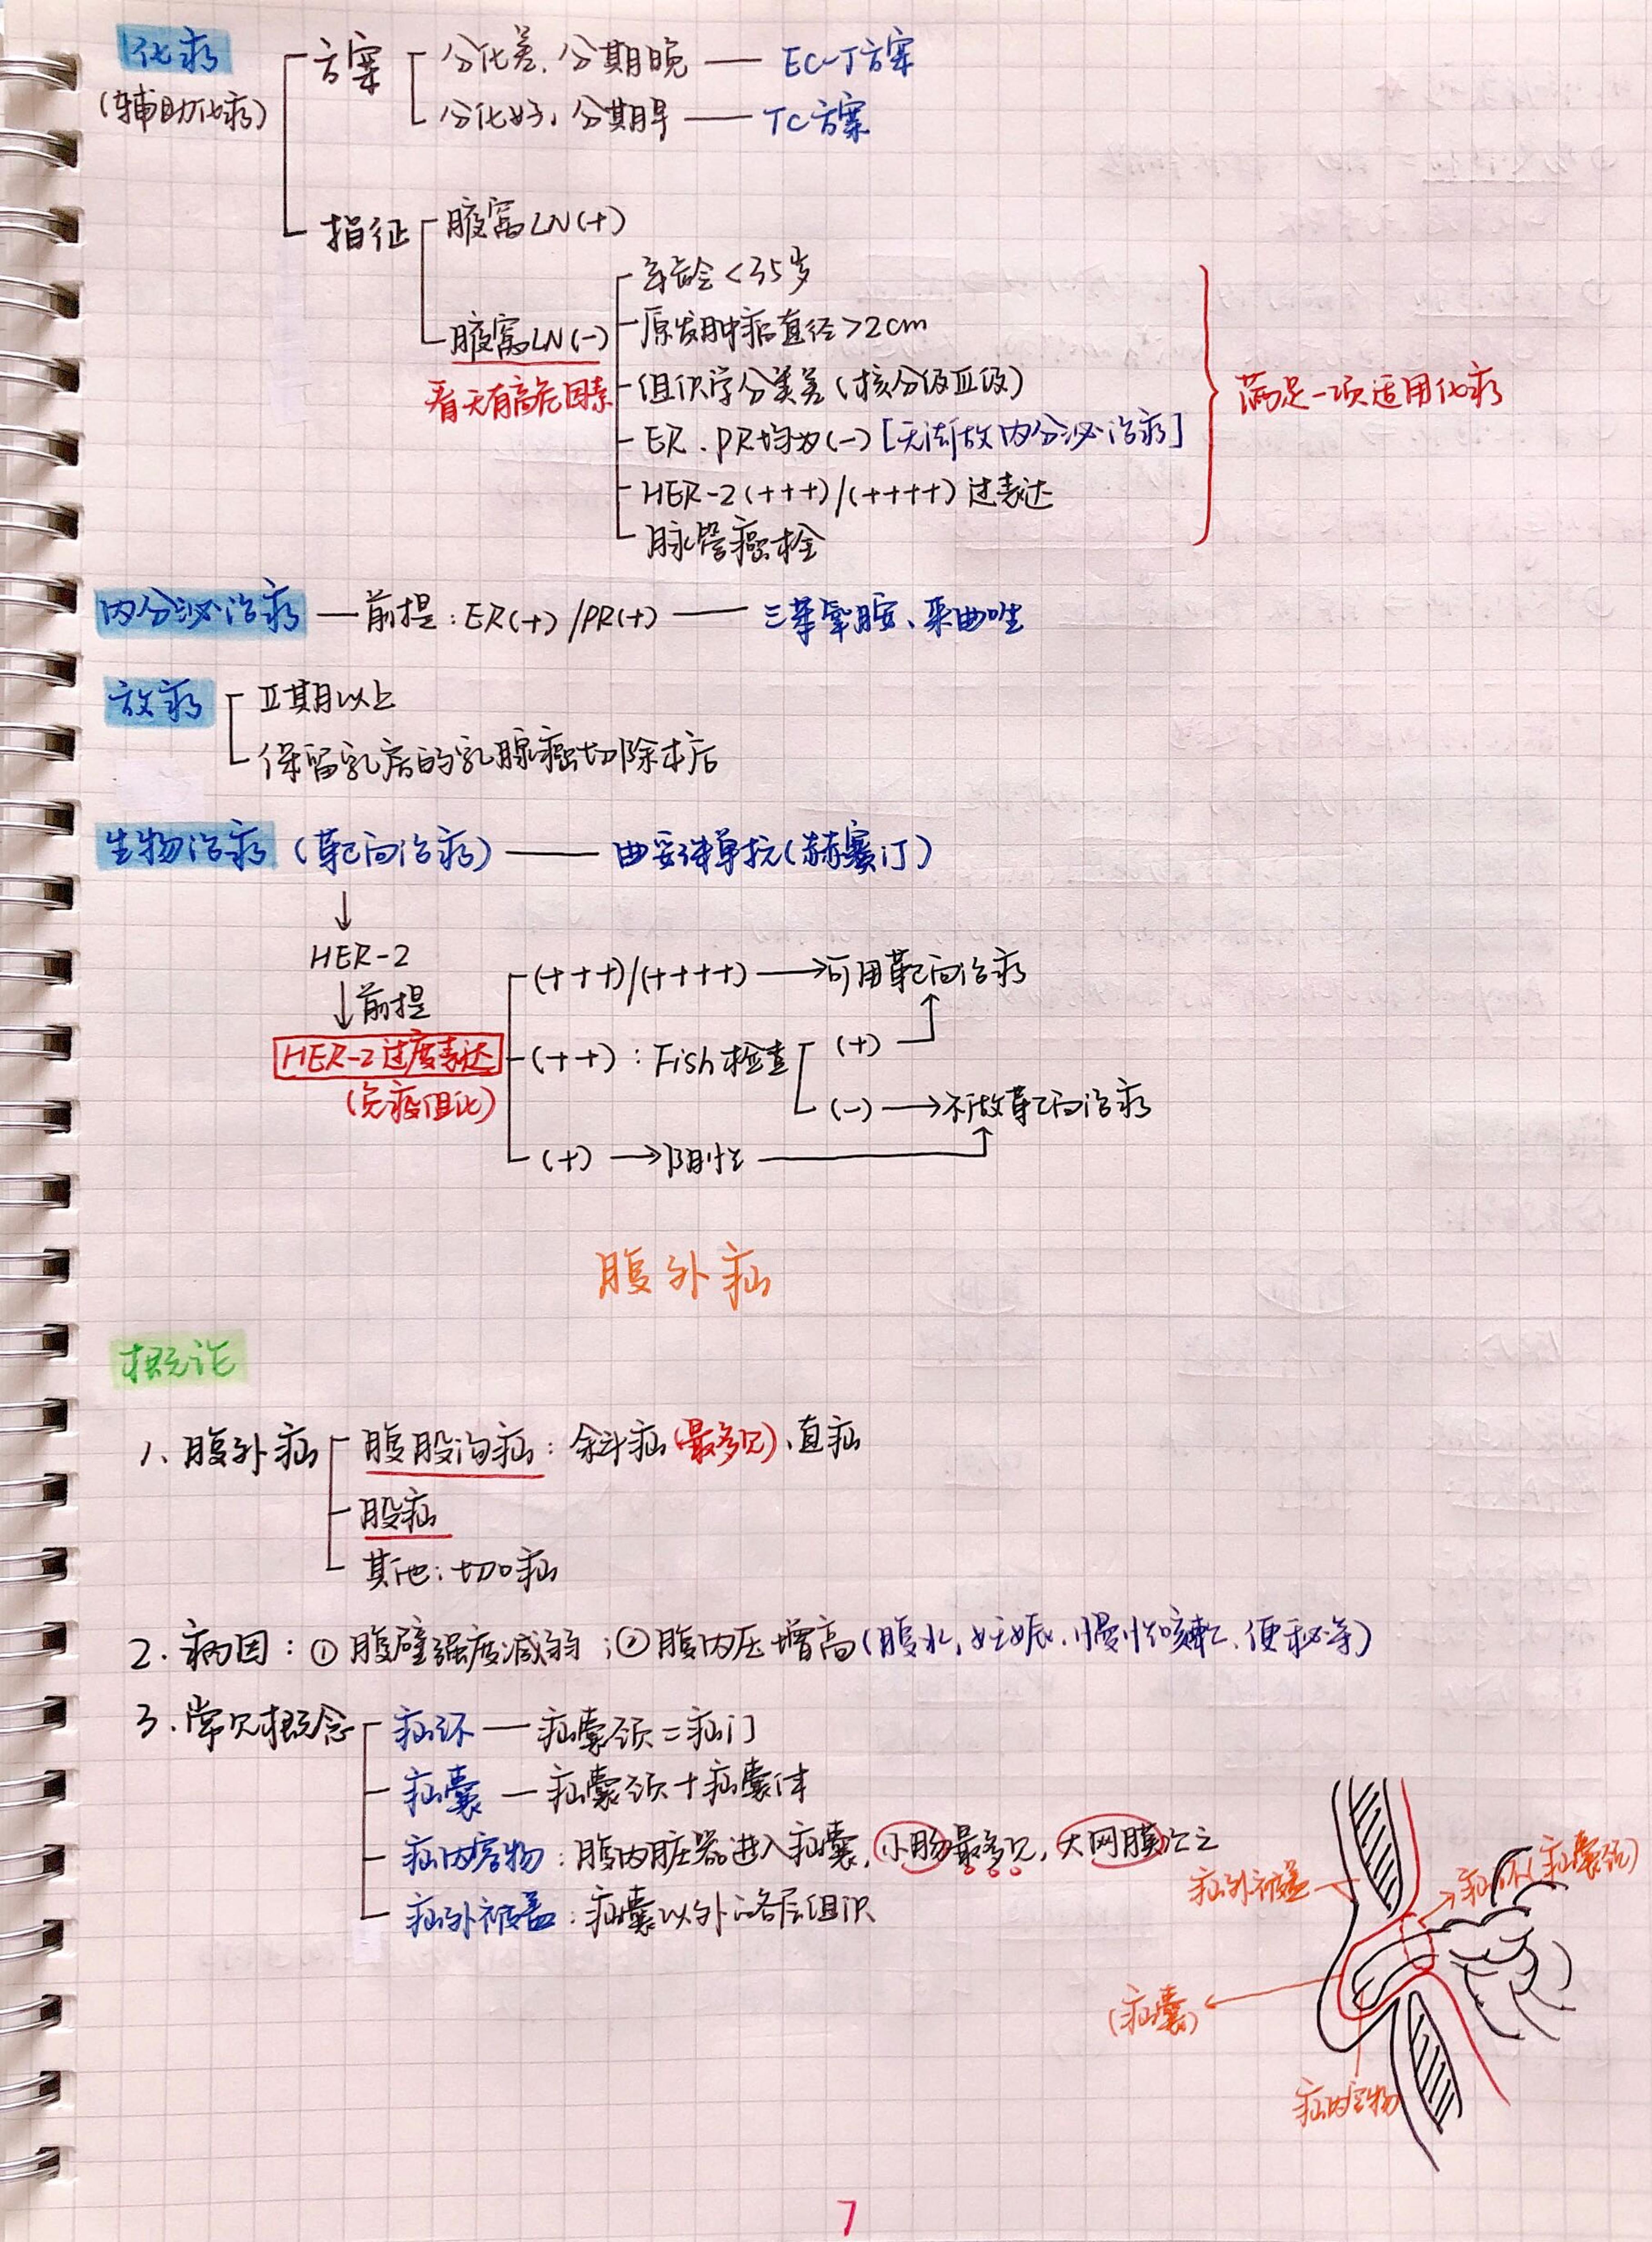 化疗
(辅助化疗)
方案
分化差,分期晚 — EC-T方案
分化好,分期早 — TC方案
指征
腋窝LN(+)
腋窝LN(-)
看无有高危因素
年龄<35岁
原发肿瘤直径>2cm
组织学分类差(核分级Ⅲ级)
ER.PR均为(-)[无法做内分泌治疗]
HER-2(+++)/(++++)过表达
脉管癌栓
满足一项适用化疗
内分泌治疗 — 前提:ER(+)/PR(+) — 三苯氧胺、来曲唑
放疗
Ⅱ期以上
保留乳房的乳腺癌切除术后
生物治疗(靶向治疗) — 曲妥珠单抗(赫赛汀)
↓
HER-2
↓前提
HER-2过度表达
(免疫组化)
(+++)/(++++)→可用靶向治疗
(++):Fish检查
(+)
(-)→不做靶向治疗
(+)→阴性
腹外疝
概论
1、腹外疝
腹股沟疝:斜疝(最多见)、直疝
股疝
其他:切口疝
2.病因:①腹壁强度减弱;②腹内压增高(腹水,妊娠、慢性咳嗽、便秘等)
3.常见概念
疝环 — 疝囊颈=疝门
疝囊 — 疝囊颈+疝囊体
疝内容物:腹内脏器进入疝囊,小肠最多见,大网膜次之
疝外被盖:疝囊以外的各层组织
疝外被盖
疝环(疝囊颈)
(疝囊)
疝内容物
7